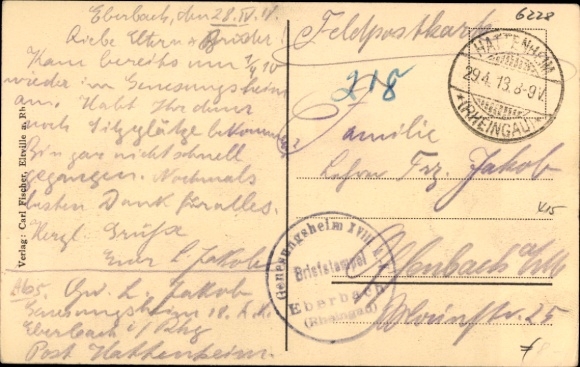 6228
Eberbach, den 28. IV. 18.
Liebe Eltern u. Brüder!
Kam bereits um
wieder im Genesungsheim
an. Habt Ihr denn
noch Sitzplätze bekommen?
Bin gar nicht schnell
gegangen. Nochmals
besten Dank für alles.
Herzl. Grüße
Euer L. Jakob
Abs. L. Jakob
Genesungsheim 18. A.K.
Eberbach i/ Rhg
Post Hattenheim.
Verlag: Carl Fischer, Eltville a. Rh.
Feldpostkarte
218
HATTENHEIM
29.4.18.8-9V.
*(RHEINGAU)*
Familie
Lehrer Frz. Jakob
Offenbach a/M
25
Genesungsheim XVIII
Briefstempel
Eberbach
(Rheingau)